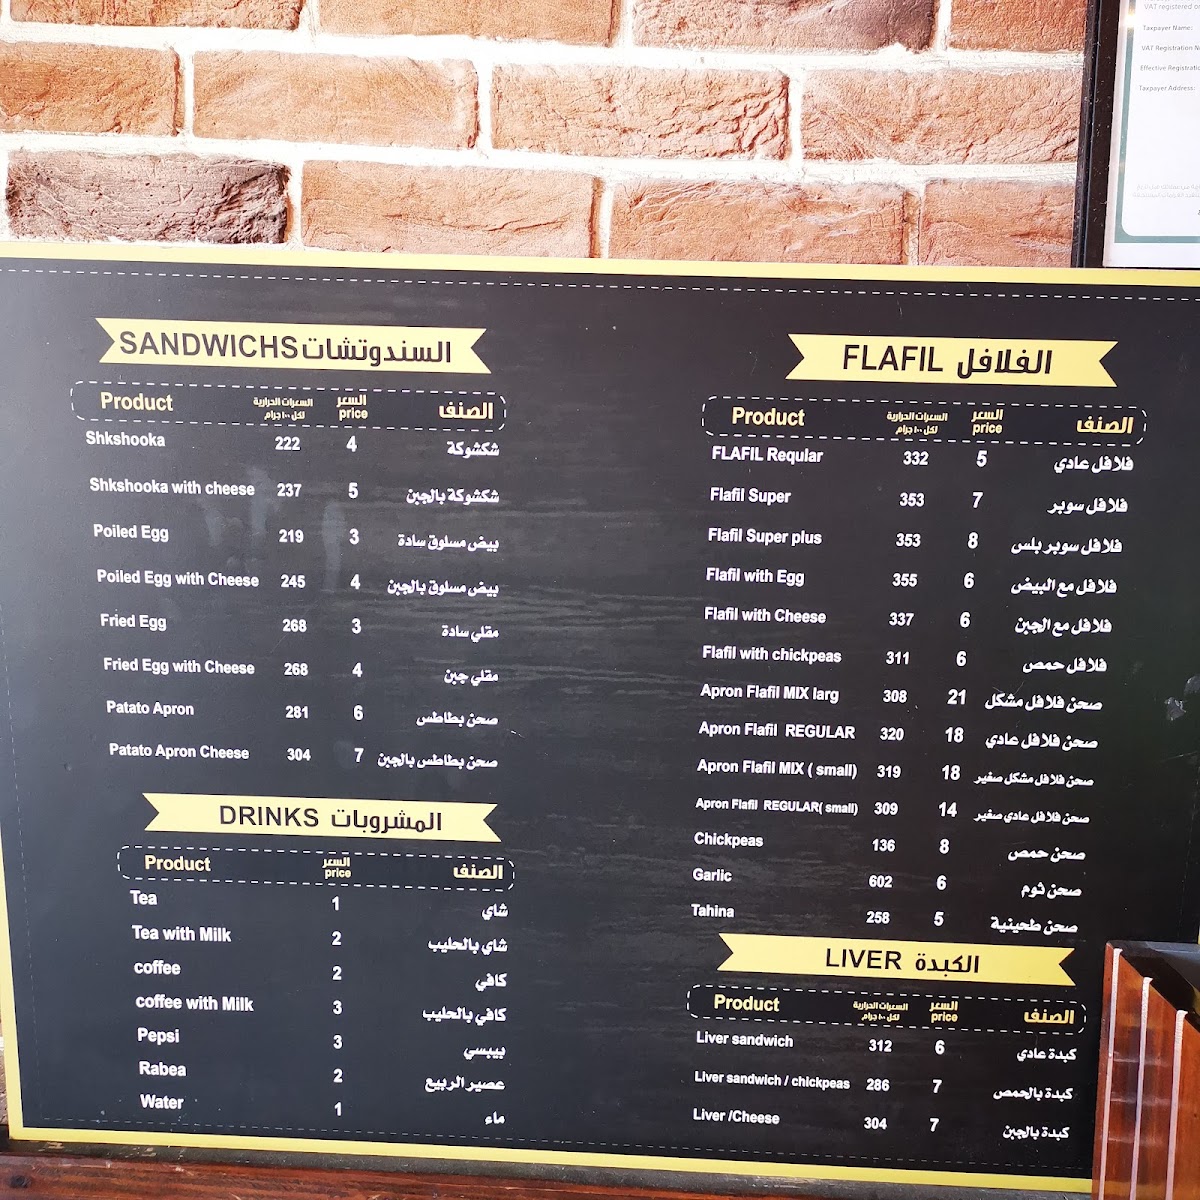 VAT registered
Taxpayer Name:
VAT Registration
Effective Registration
Taxpayer Address:
SANDWICHS السندوتشات
Product السعرات الحرارية لكل ١٠٠ جرام السعر price الصنف
Shkshooka 222 4 شكشوكة
Shkshooka with cheese 237 5 شكشوكة بالجبن
Poiled Egg 219 3 بيض مسلوق سادة
Poiled Egg with Cheese 245 4 بيض مسلوق بالجبن
Fried Egg 268 3 مقلي سادة
Fried Egg with Cheese 268 4 مقلي جبن
Patato Apron 281 6 صحن بطاطس
Patato Apron Cheese 304 7 صحن بطاطس بالجبن
DRINKS المشروبات
Product السعر price الصنف
Tea 1 شاي
Tea with Milk 2 شاي بالحليب
coffee 2 كافي
coffee with Milk 3 كافي بالحليب
Pepsi 3 بيبسي
Rabea 2 عصير الربيع
Water 1 ماء
FLAFIL الفلافل
Product السعرات الحرارية لكل ١٠٠ جرام السعر price الصنف
FLAFIL Reqular 332 5 فلافل عادي
Flafil Super 353 7 فلافل سوبر
Flafil Super plus 353 8 فلافل سوبر بلس
Flafil with Egg 355 6 فلافل مع البيض
Flafil with Cheese 337 6 فلافل مع الجبن
Flafil with chickpeas 311 6 فلافل حمص
Apron Flafil MIX larg 308 21 صحن فلافل مشكل
Apron Flafil REGULAR 320 18 صحن فلافل عادي
Apron Flafil MIX ( small) 319 18 صحن فلافل مشكل صغير
Apron Flafil REGULAR( small) 309 14 صحن فلافل عادي صغير
Chickpeas 136 8 صحن حمص
Garlic 602 6 صحن ثوم
Tahina 258 5 صحن طحينية
LIVER الكبدة
Product السعرات الحرارية لكل ١٠٠ جرام السعر price الصنف
Liver sandwich 312 6 كبدة عادي
Liver sandwich / chickpeas 286 7 كبدة بالحمص
Liver /Cheese 304 7 كبدة بالجبن